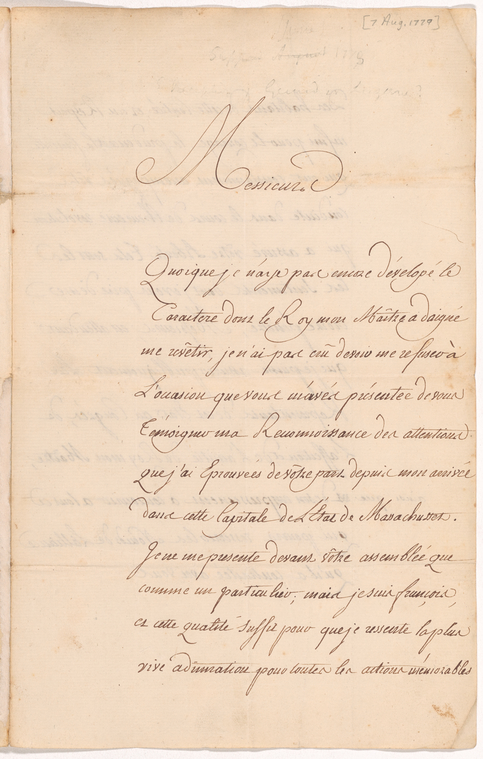 [7 Aug. 1779]
Messieurs
Quoique je n'aye pas encore dévelopé le
Caractere dont le Roy mon Maître a daigné
me revêtir, je n'ai pas crû devoir me refuser à
L'occasion que vous m'avés présentée de vous
Témoigner ma Reconnoissance des attentions
que j'ai Eprouvées de vôtre part depuis mon arrivée
dans cette Capitale de L'Etat de Massachusses.
Je ne me presente devant vôtre assemblée que
comme un particulier, mais je suis françois,
et cette qualité suffit pour que je ressente la plus
vive admiration pour toutes les actions mémorables